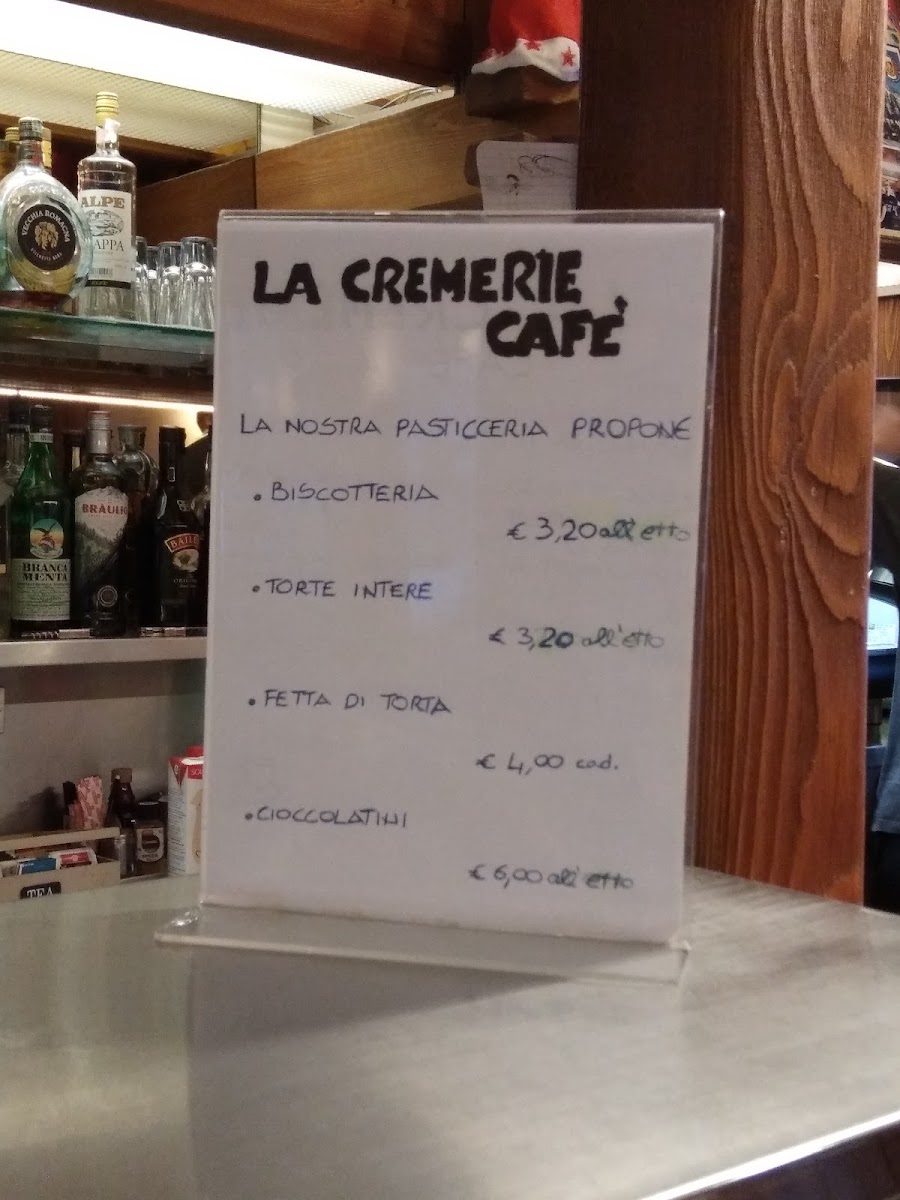 LA CREMERIE
CAFE'
LA NOSTRA PASTICCERIA PROPONE
• BISCOTTERIA
€ 3,20 all'etto
• TORTE INTERE
€ 3,20 all'etto
• FETTA DI TORTA
€ 4,00 cad.
• CIOCCOLATINI
€ 6,00 all'etto
VECCHIA ROMAGNA
ALPE
BRANCA
MENTA
BRAULIO
TEA